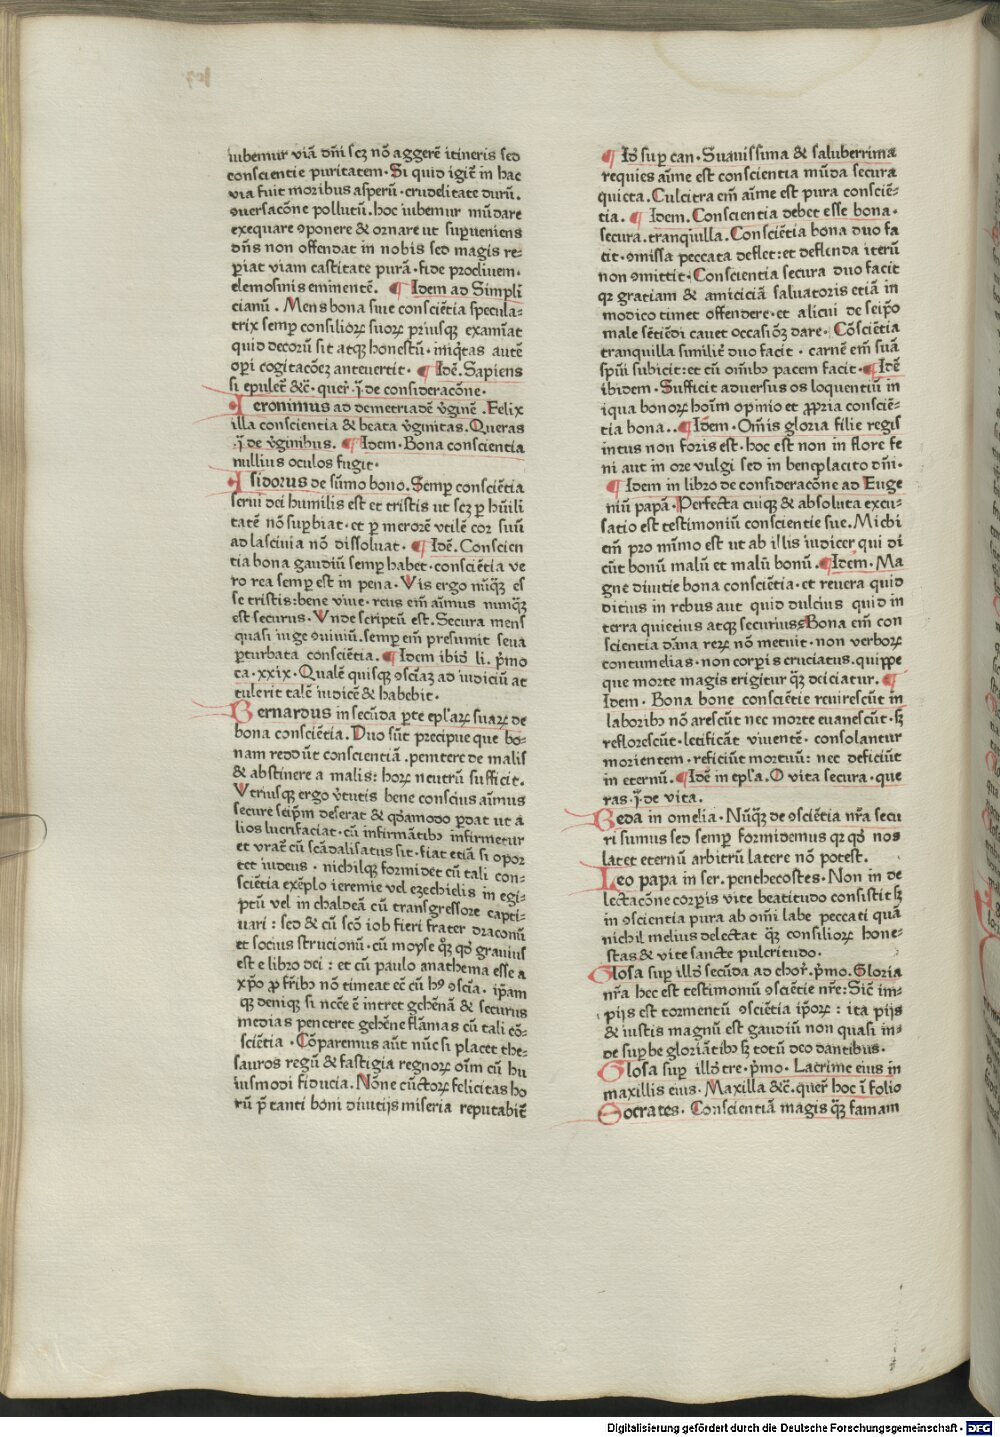 iubemur viā dn̄i scꝫ nō aggerē itineris sed
conscientie puritatem. Si quid igit̄ in hac
via fuit moribus asperū. crudelitate durū.
ꝯuersacōne pollutū. hoc iubemur mūdare
exequare ꝯponere & ornare ut supueniens
dn̄s non offendat in nobis sed magis re-
ꝑiat viam castitate purā. fide procliuem.
elemosinis eminentē. ¶ Idem ad Simpli
cianū. Mens bona siue consciētia specula-
trix semꝑ consilioꝝ suoꝝ priusqꝫ examīat
quid decorū sit atqꝫ honestū. iniq̄tas autē
oꝑi cogitacōeꝫ anteuertit. ¶ Idē. Sapiens
si epulet̄ &c̄. quer̄. ī. de consideracōne.
Ieronimus ad demetriadē v̄ginē. Felix
illa conscientia & beata v̄ginitas. Queras
.ī. de v̄ginibus. ¶ Idem. Bona conscientia
nullius oculos fugit.
Isidorus de sūmo bono. Semꝑ consciētia
serui dei humilis est et tristis ut scꝫ ꝑ hūili
tatē nō suꝑbiat. et ꝑ merorē vtilē cor suū
ad lasciuia nō dissoluat. ¶ Idē. Conscien
tia bona gaudiū semꝑ habet. consciētia ve
ro rea semꝑ est in pena. Vis ergo nūq̄ꝫ es
se tristis: bene viue. reus em̄ aīmus nunq̄ꝫ
est securus. Vnde scriptū est. Secura mens
quasi iuge ꝯuiuiū. semꝑ em̄ presumit seua
ꝑturbata consciētia. ¶ Idem ibid̄ li. p̄mo
ca. xxix. Qualē quisqꝫ ꝯsciaꝫ ad iudiciū at
tulerit talē iudicē & habebit.
Bernardus in secūda ꝑte epl'aꝝ suaꝝ de
bona consciētia. Duo sūt precipue que bo-
nam reddūt conscientiā. penitere de malis
& abstinere a malis: horꝝ neutrū sufficit.
Vtriusqꝫ ergo v̄tutis bene conscius aīmus
secure seip̄m deserat & qd̄amodo ꝑdat ut a
lios lucrifaciat. cū infirmātibꝫ infirmetur
et vratꝰ cū scādalisatus sit. fiat etiā si opor
tet iudeus. nichilqꝫ formidet cū tali con-
sciētia exēplo ieremie vel ezechielis in egi-
ptū vel in chaldeā cū transgressore capti-
uari: sed & cū scō iob fieri frater draconū
et socius strucionū. cū moyse q̄ꝫ qd̄ grauius
est e libro dei: et cū paulo anathema esse a
xp̄o ꝓ fr̄ibꝫ nō timeat cē cū hꝰ ꝯscia. ip̄am
qꝫ deniqꝫ si ncc̄e ē intret gehēnā & securus
medias penetret gehēne flāmas cū tali cō-
sciētia. Cōparemus aūt nūc si placet the-
sauros regū & fastigia regnoꝝ oīm cū hu
iusmodi fiducia. Nōne cūctoꝝ felicitas ho
rū p̄ tanti boni diuitijs miseria reputabit̄
¶ Id̄ suꝑ can. Suauissima & saluberrima
requies aīme est conscientia mūda secura
quieta. Culcitra em̄ aīme est pura consciē-
tia. ¶ Idem. Conscientia debet esse bona.
secura. tranquilla. Consciētia bona duo fa
cit. ꝯmissa peccata deflet: et deflenda iterū
non ꝯmittit. Conscientia secura duo facit
qꝛ gratiam & amiciciā saluatoris etiā in
modico timet offendere. et alicui de seip̄o
male sētiēdi cauet occasiōꝫ dare. Cōsciētia
tranquilla similiē duo facit. carnē em̄ suā
spūi subicit: et cū om̄ibꝫ pacem facit. ¶ Idē
ibidem. Sufficit aduersus os loquentiū in
iqua bonoꝝ hoīm opinio et ꝓpria consciē-
tia bona.. ¶ Idem. Om̄is gloria filie regis
intus non foris est. hoc est non in flore fe
ni aut in ore vulgi sed in beneplacito dn̄i.
¶ Idem in libro de consideracōne ad Euge
niū papā. Perfecta cuiqꝫ & absoluta excu-
satio est testimoniū conscientie sue. Michi
em̄ pro mīmo est ut ab illis iudicer qui di
cūt bonū malū et malū bonū. ¶ Idem. Ma
gne diuitie bona consciētia. et reuera quid
dicius in rebus aut quid dulcius quid in
terra quietius atqꝫ securius? Bona em̄ con
scientia dāna rerꝝ nō metuit. non verboꝝ
contumelias. non corꝑis cruciatus. quippe
que morte magis erigitur q̄ꝫ deiciatur. ¶
Idem. Bona bone conscietie reuirescūt in
laboribꝫ nō arescūt nec morte euanescūt. sꝫ
reflorescūt. letificāt viuentē. consolantur
morientem. reficiūt mortuū: nec deficiūt
in eternū. ¶ Idē in epl'a. O vita secura. que
ras. ī. de vita.
Beda in omelia. Nūq̄ꝫ de ꝯsciētia nr̄a secu
ri sumus sed semꝑ formidemus qꝛ qd̄ nos
latet eternū arbitrū latere nō potest.
Leo papa in ser. penthecostes. Non in de
lectacōne corꝑis vite beatitudo consistit sꝫ
in ꝯscientia pura ab om̄i labe peccati quā
nichil melius delectat q̄ꝫ consilioꝝ hone-
stas & vite sancte pulcritudo.
Glosa suꝑ illd̄ secūda ad chor̄. p̄mo. Gloria
nr̄a hec est testimoniū ꝯsciētie nr̄e: Sic̄ im-
pijs est tormentū ꝯsciētia ip̄oꝝ: ita pijs
& iustis magnū est gaudiū non quasi in-
de suꝑbe gloriātibꝫ sꝫ totū deo dantibus.
Glosa suꝑ illd̄ tre. p̄mo. Lacrime eius in
maxillis eius. Maxilla &c̄. quer̄ hoc ī folio
Socrates. Conscientiā magis q̄ꝫ famam
Digitalisierung gefördert durch die Deutsche Forschungsgemeinschaft - DFG